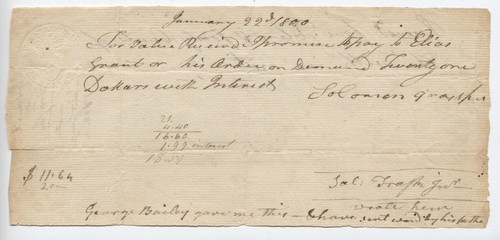 January 22d 1800
For Value Received I promise to pay to Elias
Grant or his Order on Demand Twenty one
Dollars with Interest
Solomon
21.
4.40
16.60
1.99 interest
$ 11.64
Sol: Trask Jur
wrote here
George Bailey gave me this - I have sent word by his